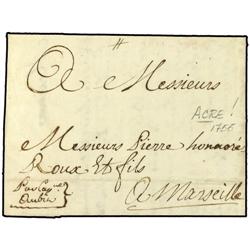 A Messieurs
ACRE!
1766
Messieurs Pierre honnoré
Roux Et fils
Par Cap.ne
Aubin
A Marseille